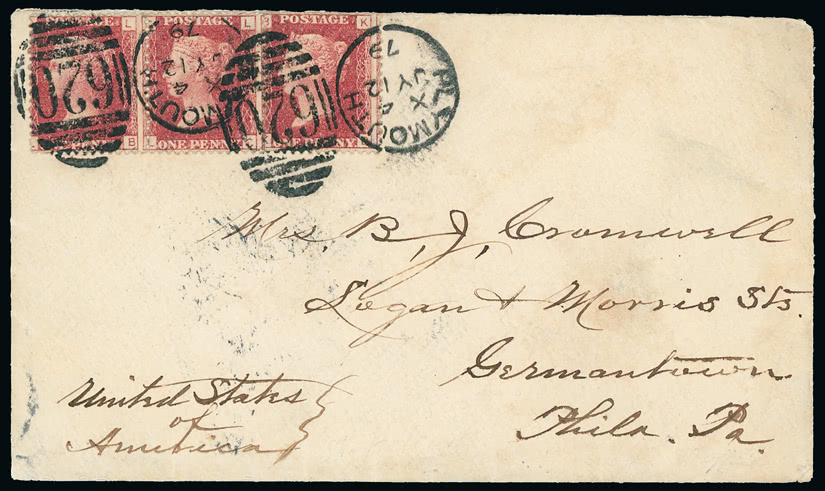 L
L
K
POSTAGE
POSTAGE
B
L
ONE PENNY
ONE PENNY
620
620
PLYMOUTH
X
4
JY 12
79
PLYMOUTH
X
4
JY 12
79
Mrs. B. J. Cromwell
Logan & Morris Sts.
Germantown
Phila. Pa.
United States
of
America